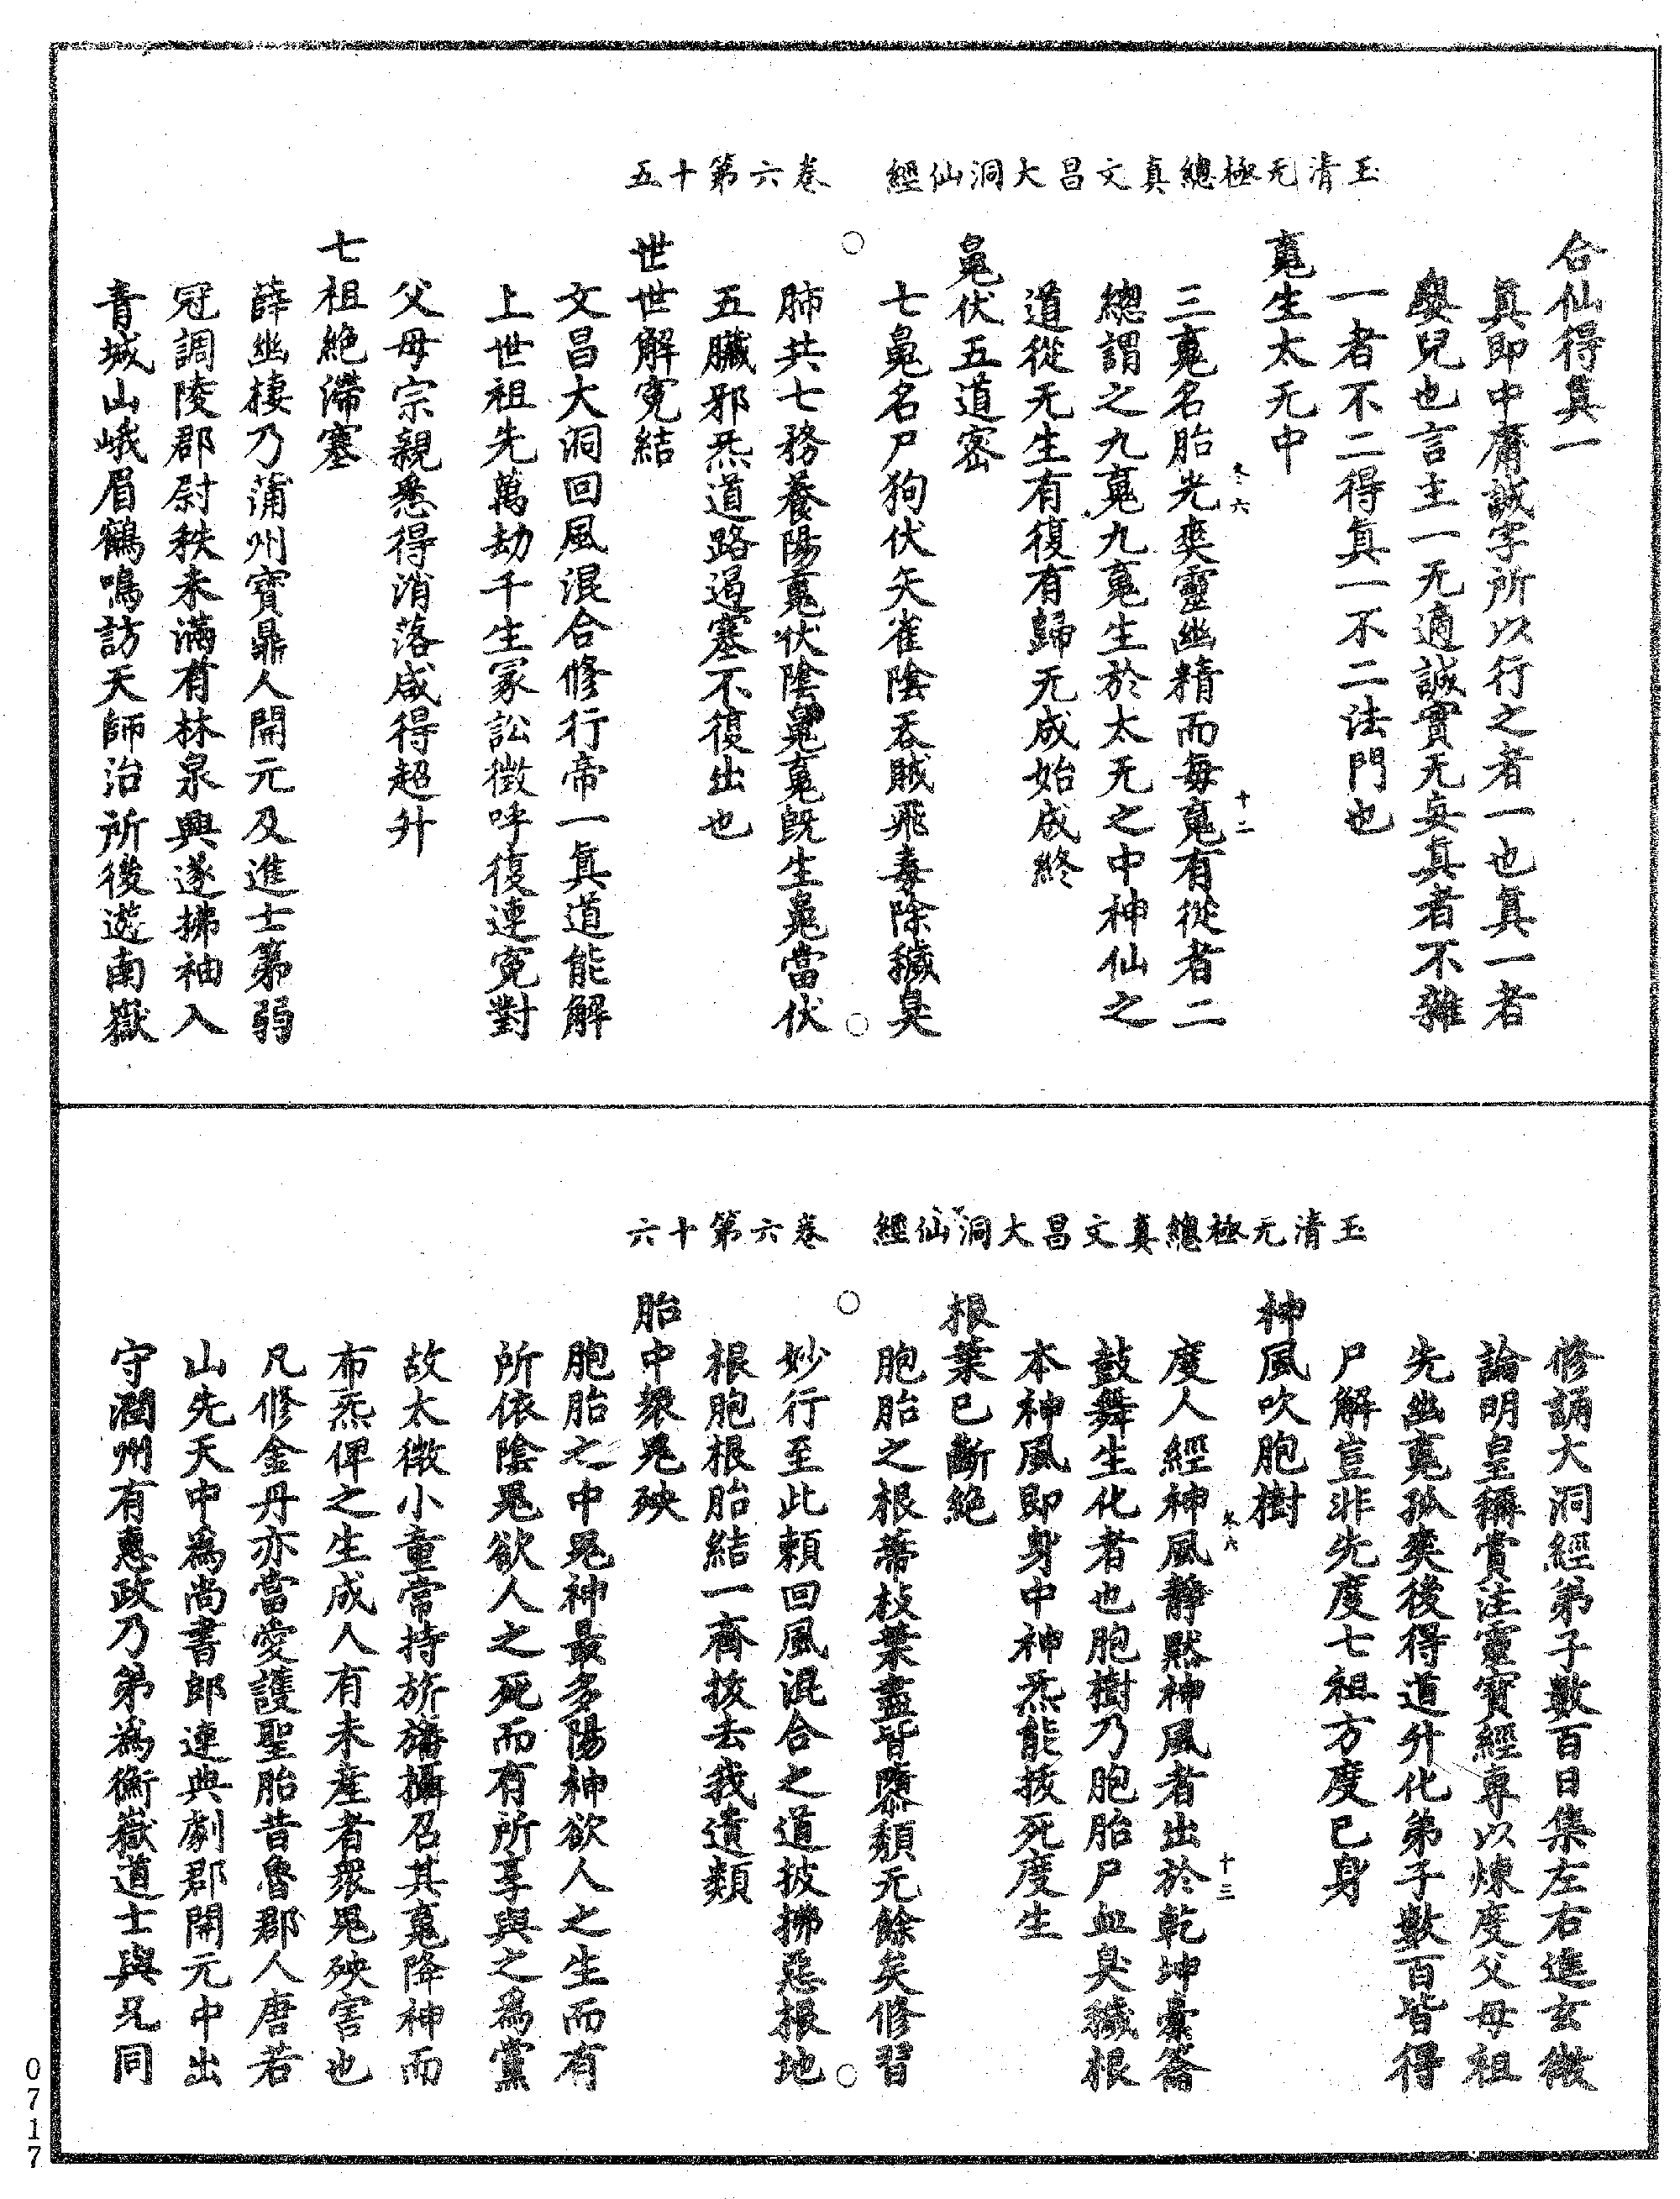 玉清无極總真文昌大洞仙經　卷六第十五
合仙得真一
真即中庸誠字所以行之者一也真一者
嬰兒也言主一无適誠實无妄真者不雜
一者不二得真一不二法門也
䰟生太无中
三䰟名胎光爽靈幽精而每䰟有從者二
總謂之九䰟九䰟生於太无之中神仙之
道從无生有復有歸无成始成終
鬽伏五道密
七鬽名尸狗伏矢雀陰吞賊飛毒除穢臭
肺共七務養陽䰟伏陰鬽䰟既生鬽當伏
五臟邪炁道路遏塞不復出也
世世解冤結
文昌大洞回風混合修行帝一真道能解
上世祖先萬劫千生冢訟徵呼復連冤對
父母宗親悉得消落咸得超升
七祖絶滯塞
薛幽棲乃蒲州寶鼎人開元及進士第弱
冠調陵郡尉秩未滿有林泉興遂拂袖入
青城山峨眉鶴鳴訪天師治所後遊南嶽
冬六
十二
玉清无極總真文昌大洞仙經　卷六第十六
修誦大洞經弟子數百日集左右進玄微
論明皇稱賞注靈寶經專以煉度父母祖
先幽䰟孤爽後得道升化弟子數百皆得
尸解豈非先度七祖方度已身
神風吹胞樹
度人經神風靜默神風者出於乾坤橐籥
鼓舞生化者也胞樹乃胞胎尸血臭穢根
本神風即身中神炁能拔死度生
根葉已斷絶
胞胎之根蒂枝葉盡皆隳頽无餘矣修習
妙行至此頼回風混合之道披拂惡根地
根胞根胎結一齊拔去我遺類
胎中衆鬼殃
胞胎之中鬼神最多陽神欲人之生而有
所依陰鬼欲人之死而有所享與之為黨
故太微小童常持旂旛攝召其䰟降神而
布炁俾之生成人有未産者衆鬼殃害也
凡修金丹亦當愛護聖胎昔魯郡人唐若
山先天中為尚書郎連典劇郡開元中出
守潤州有惠政乃弟為衡嶽道士與兄同
冬六
十三
0717